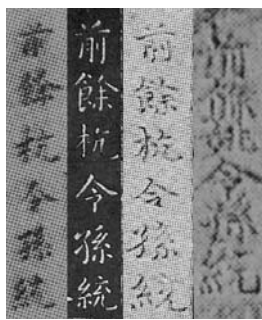 前餘杭令孫統
前餘杭令孫統
前餘杭令孫統
前餘姚令孫統